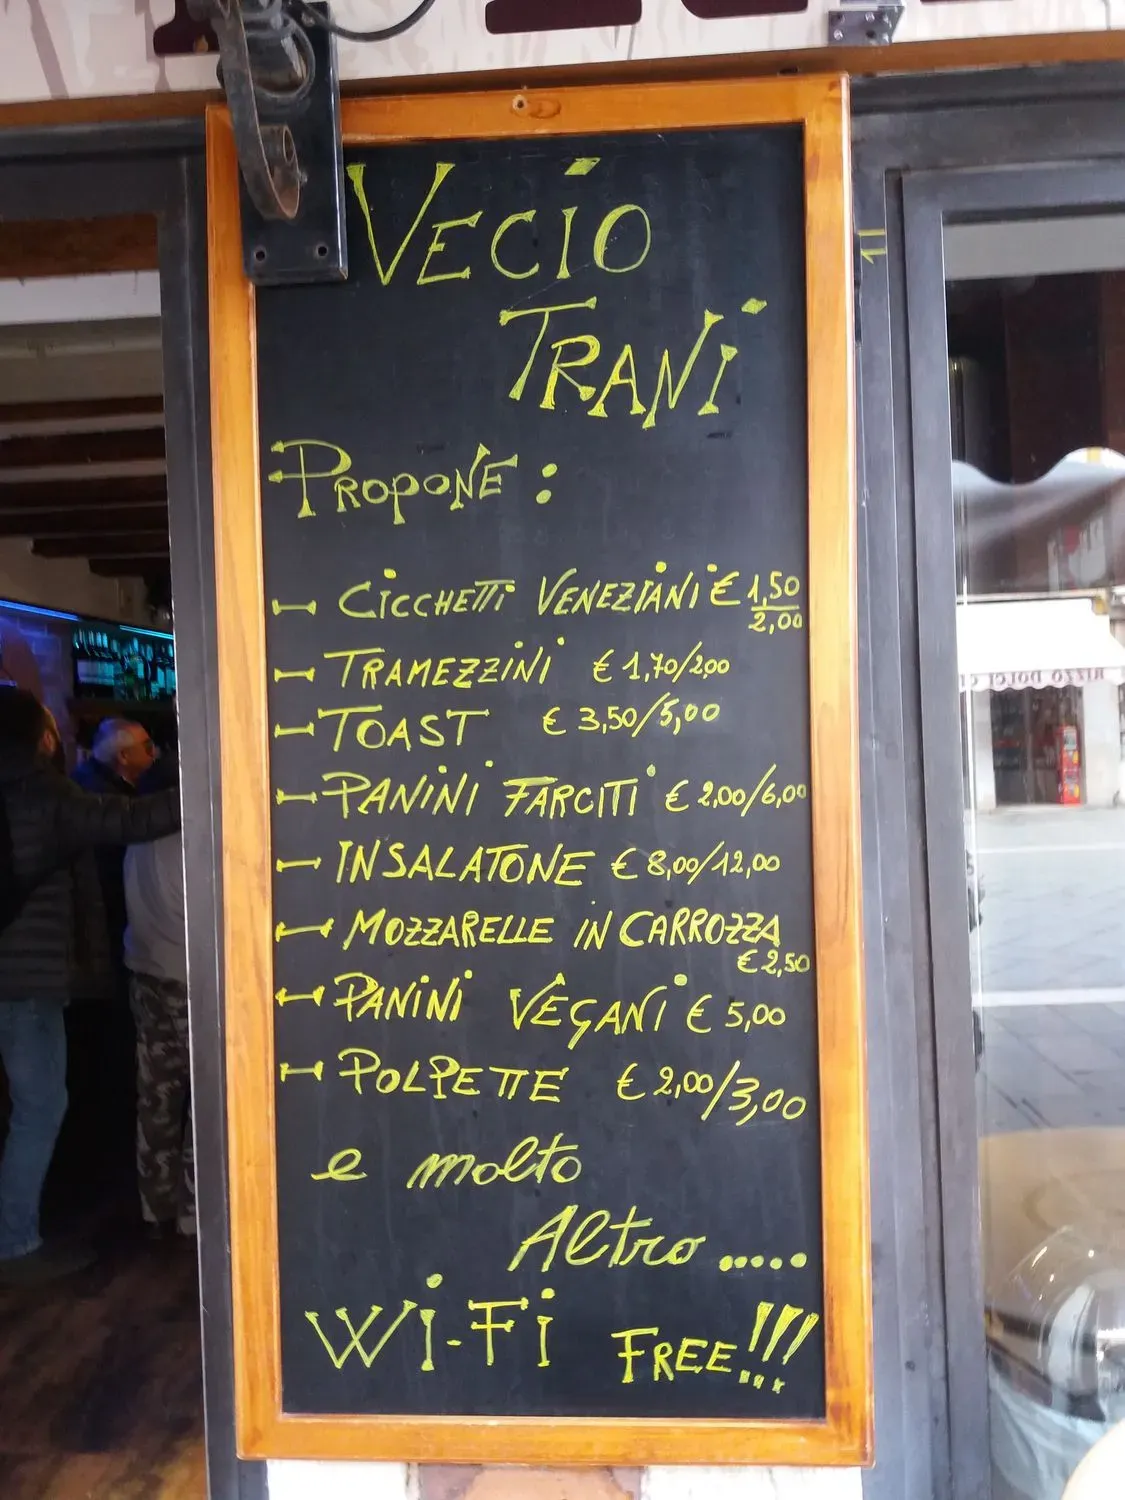 VECIO
TRANI
PROPONE :
CICCHETTI VENEZIANI € 1,50
2,00
TRAMEZZINI € 1,70/2,00
TOAST € 3,50/5,00
PANINI FARCITI € 2,00/6,00
INSALATONE € 8,00/12,00
MOZZARELLE IN CARROZZA
€ 2,50
PANINI VEGANI € 5,00
POLPETTE € 2,00/3,00
e molto
Altro .....
Wi-Fi FREE!!!
RIZZO DOLCI